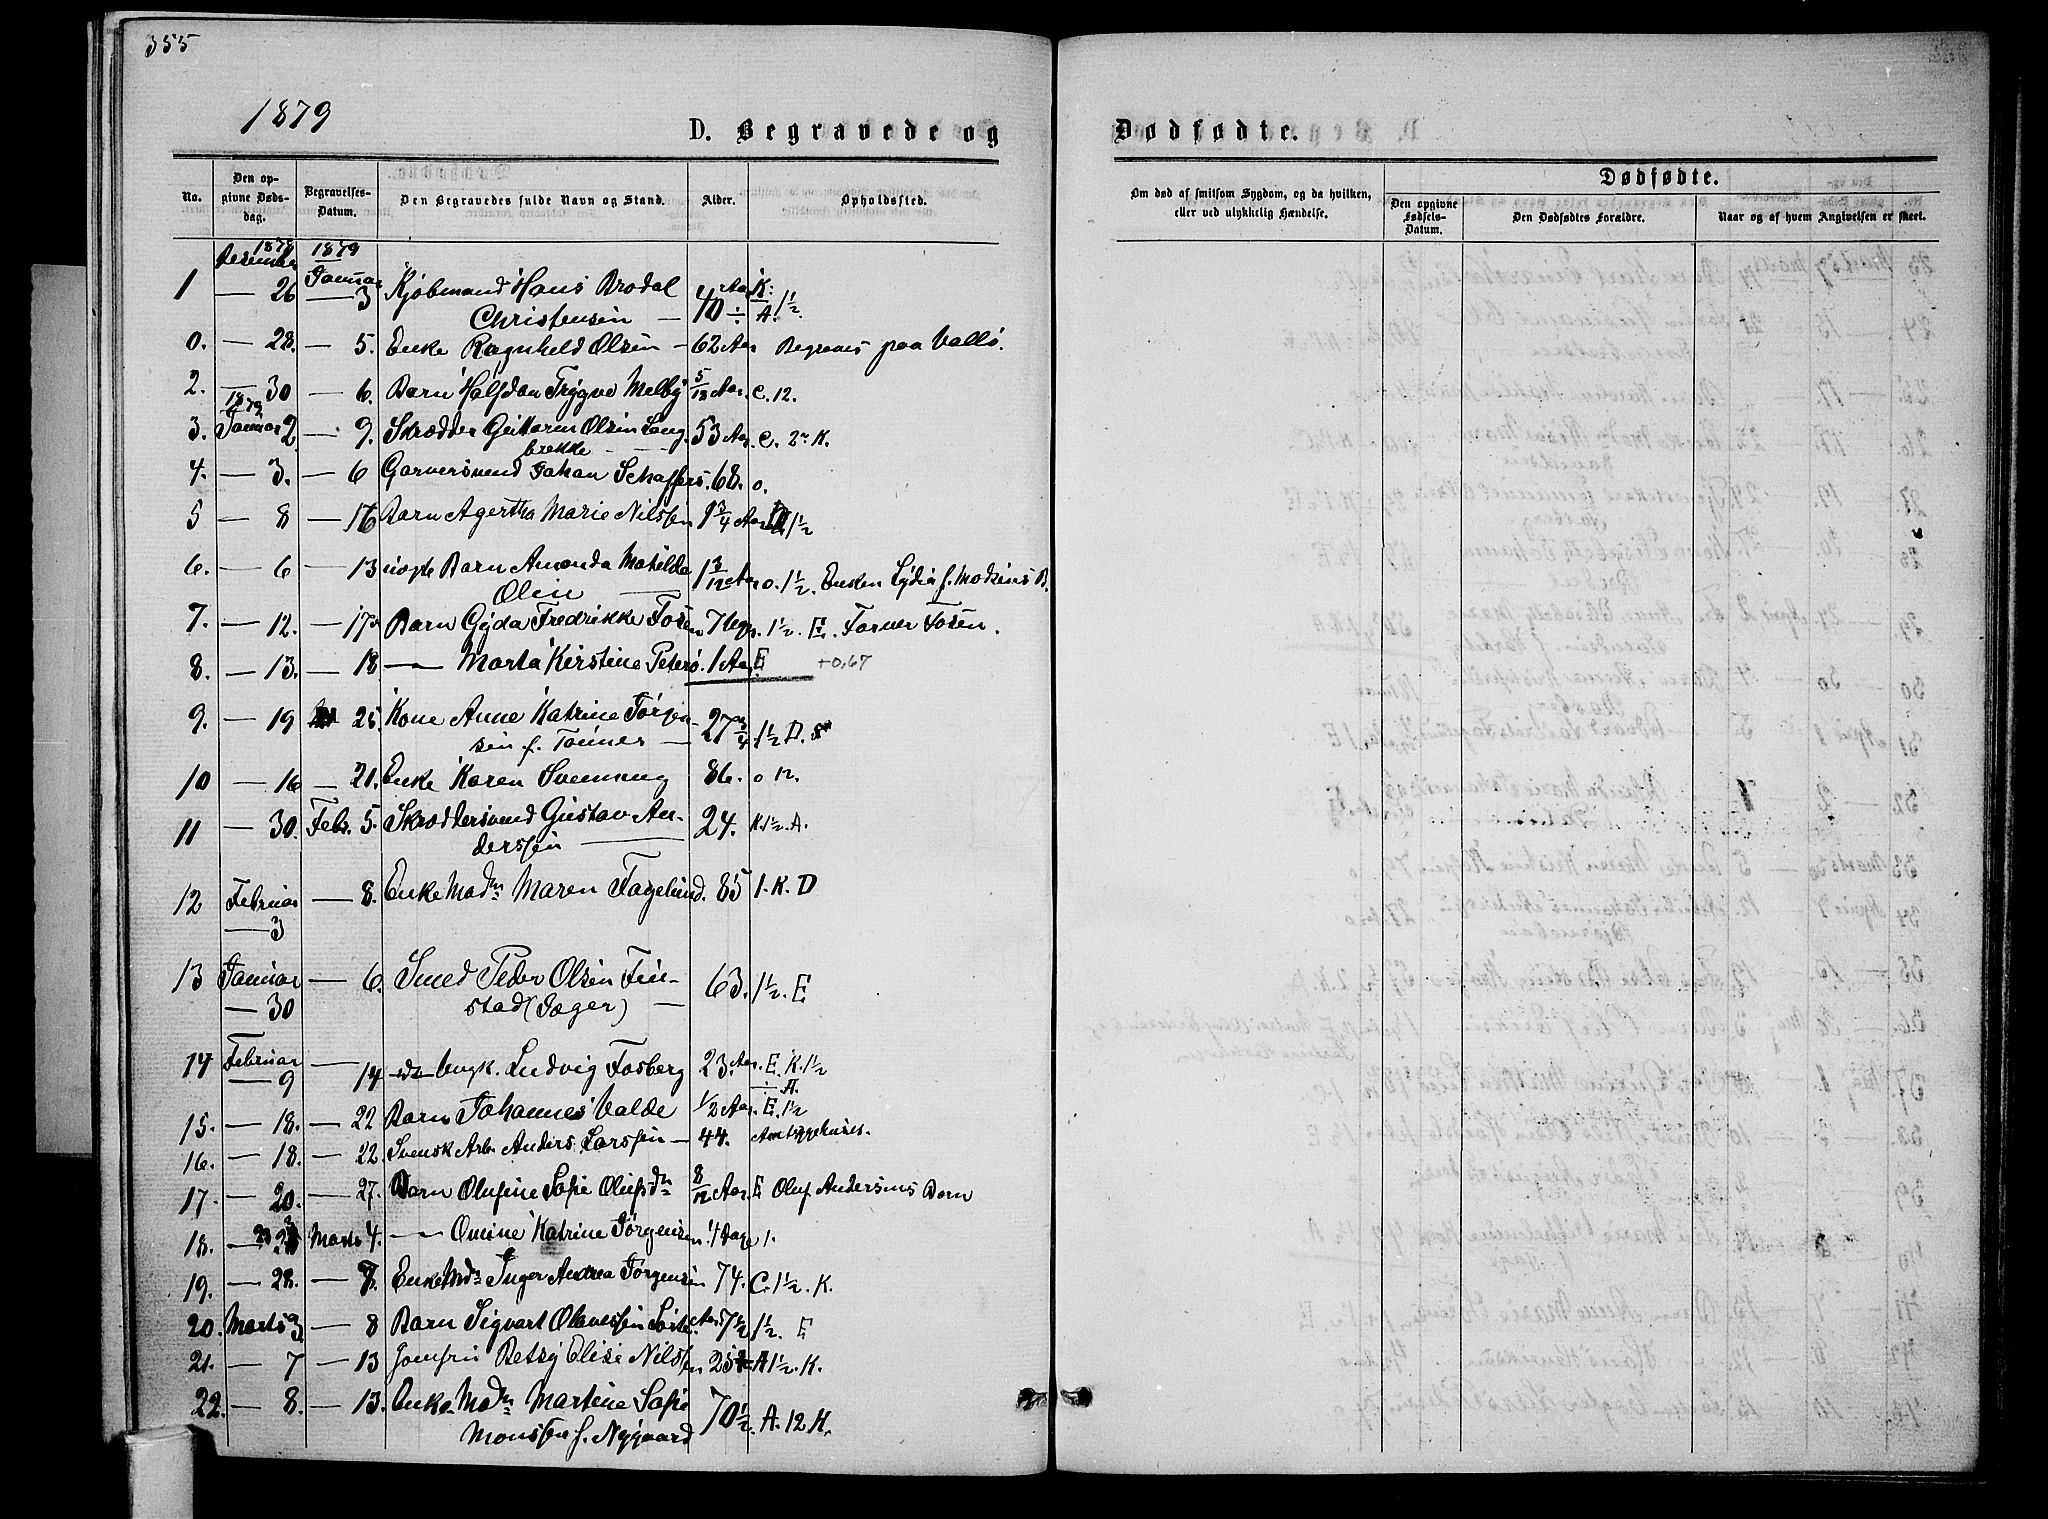 355
1879
D. Begravede og
No.
Den op-
givne Døds-
dag.
Begravelses-
Datum.
Den Begravedes fulde Navn og Stand.
Alder.
Opholdssted.
1878
1879
Januar
1 — 26 — 3 Kjøbmand Hans Brodal 40 Aar K:
Christensen — A. 1½.
0. — 28. — 5. Enke Ragnhild Olsen — 62 Aar Begraves paa Vallø.
2. — 30 — 6. Barn Halfdan Trygve Melby 5/12 Aar. C. 12.
1879
3. Januar 2 — 9. Skrædder Guttorm Olsen Lang 53 Aar. C. 2 K.
brekke —
4. — 3. — 6 Garversvend Johan Schaffers. 68. o.
5 — 8 — 16 Barn Agertha Marie Nilssen 1¾ Aar 1½
6. — 6 — 13 Barn Amanda Matilde 1 3/12 Aar o. 1½. Enken Lydia f. Madsens B.
Olsen —
7. — 12. — 17 Barn Gyda Fredrikke Fosen 7 1½. E. Farver Fosen.
8. — 13. — 18 — Marta Kirstine Peters. 1 Aar E +0,67
9. — 19 25. Kone Anne Katrine Jørgen- 27¾ 1½ D.
sen f. —
10 — 16 — 21. Enke Karen Svenneng 86. o 12.
11 — 30. Febr. 5. Skræddersvend Gustav An- 24. K. 1½. A.
derssen —
12 Februar — 8. Enke Madm Maren Fagelund. 85 1. K. D
— 3
13 Januar — 6. Smed Peder Olsen Fin- 63. 1½. E
— 30 stad (Jager) —
14 Februar — 14 Ludvig Fosberg 23. Aar. E. K. 1½
— 9 A.
15. — 18. — 22 Barn Johannes Valde ½ Aar. E. 1½
16. — 18. — 22. Svensk Arb. Anders Larssen — 44. Amtssygehuset.
17. — 20. — 27. Barn Olufine Sofie Olufsdn 8/12 Aar. E Oluf Andersens Barn
18. — Marts 4. — Omine Katrine Jørgensen. 4 Dage 1.
19. — 28. — 8. Enke Mdm Inger Andrea Jørgensen 74. C. 1½. K.
20. Marts 3. — 8 Barn Sigvart Olavessen Aar 7½ 1½. E
21. — 7 — 13 Jomfru Betsy Elise Nilssen 25 A 1½. K.
22. — 8. — 13. Enke Madm Martine Sofie 70½. A. 12 K.
Monssen f. Nygaard
Dødfødte.
Om død af smitsom Sygdom, og da hvilken,
eller ved ulykkelig Hændelse.
Dødfødte.
Den opgivne
Fødsels-
Datum.
Den Dødfødtes Forældre.
Naar og af hvem Angivelsen er skeet.